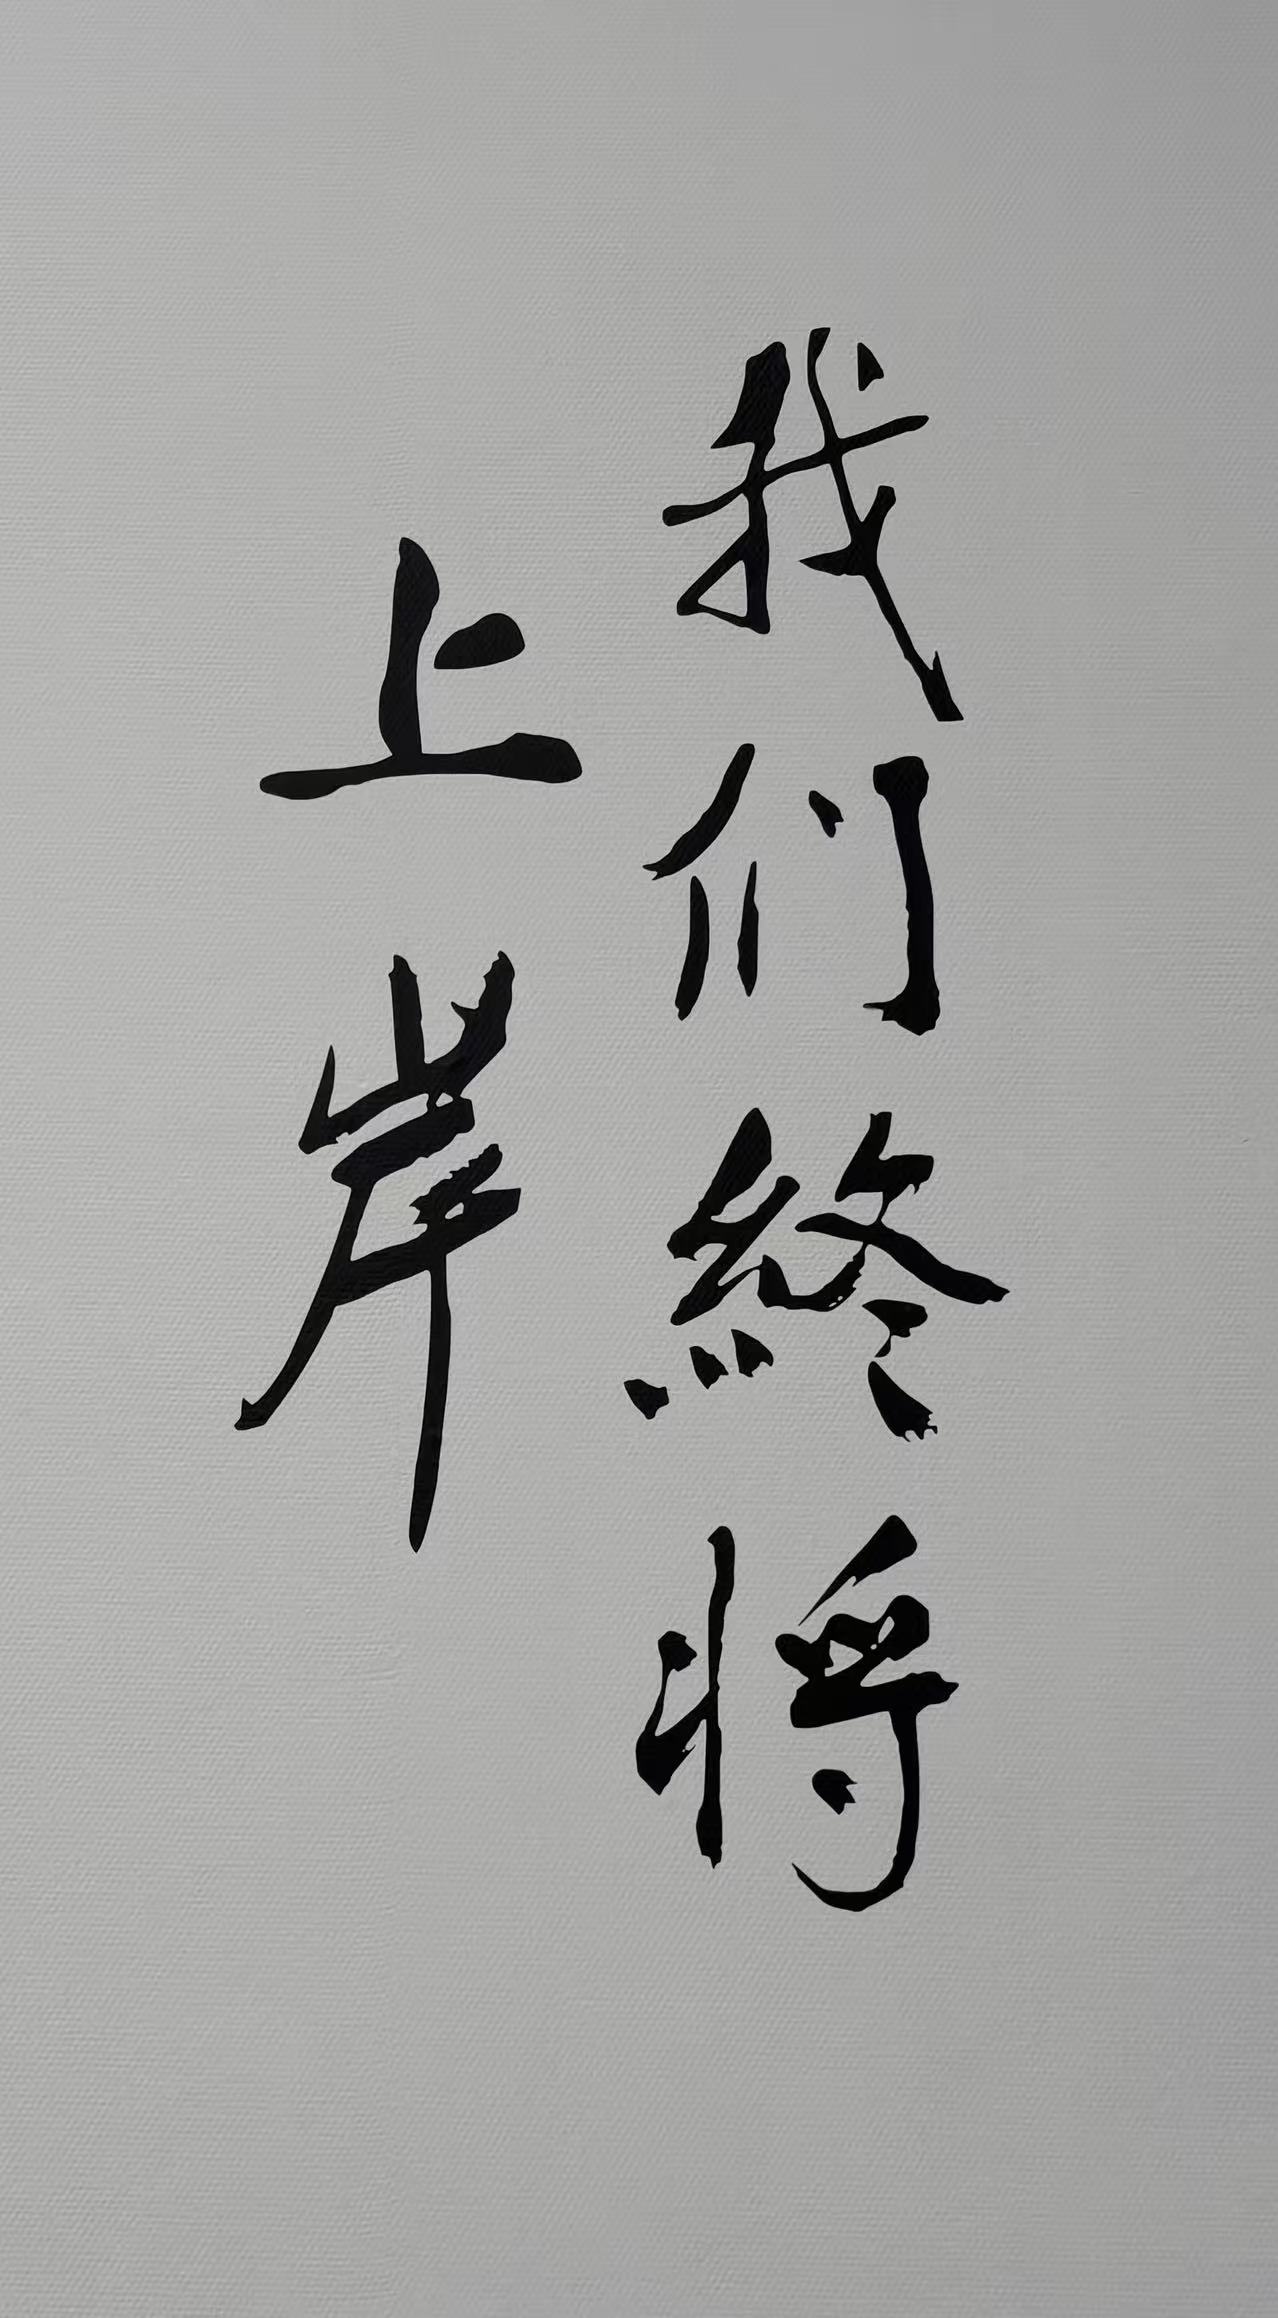 我们終将
上岸